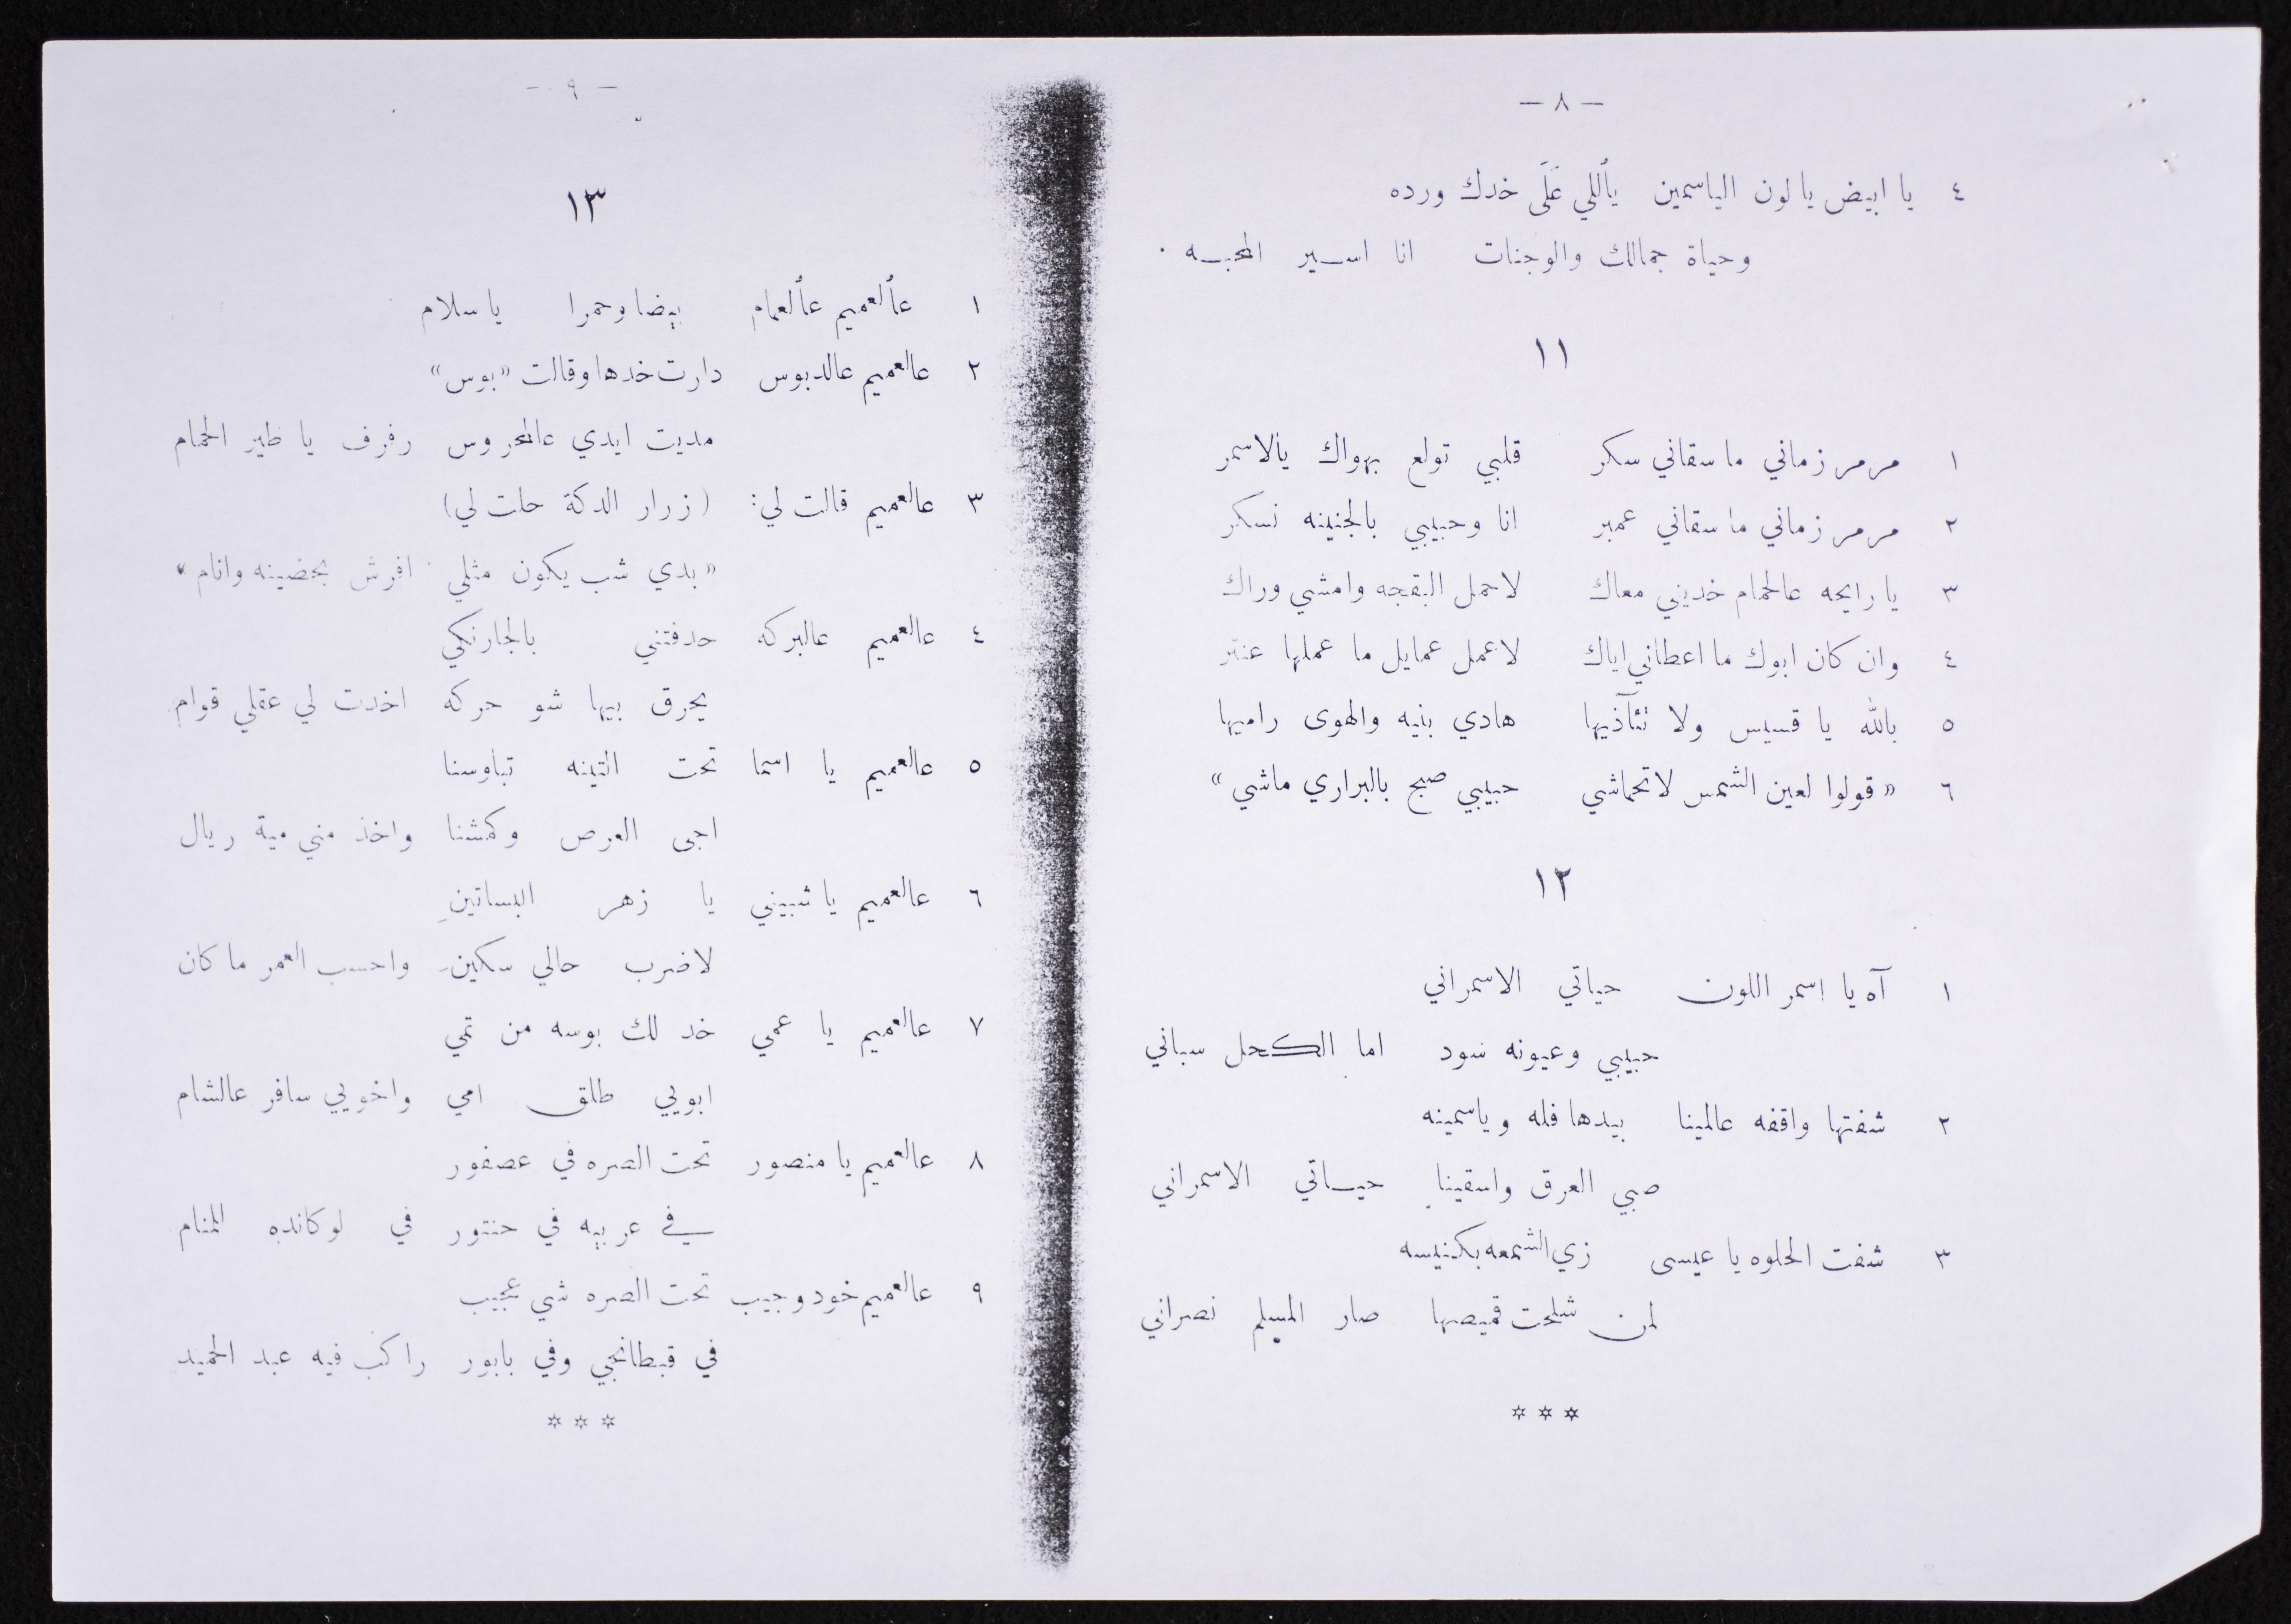 — ٨ —
٤ يا ابيض يا لون الياسمين يأللي عَلَى خدك ورده
وحياة جمالك والوجنات انا اسير المحبه .
١١
١ مرمر زماني ما سقاني سكر قلبي تولع بهواك يالاسمر
٢ مرمر زماني ما سقاني عمبر انا وحبيبي بالجنينه نسكر
٣ يا رايحه عالحمام خديني معاك لاحمل البقجه وامشي وراك
٤ وان كان ابوك ما اعطاني اياك لاعمل عمايل ما عملها عنتر
٥ بالله يا قسيس ولا تئآذيها هادي بنيه والهوى راميها
٦ « قولوا لعين الشمس لا تحماشي حبيبي صبح بالبراري ماشي »
١٢
١ آه يا اسمر اللون حياتي الاسمراني
حبيبي وعيونه سود اما الكحل سباني
٢ شفتها واقفه عالمينا بيدها فله وياسمينه
صبي العرق واسقينا حياتي الاسمراني
٣ شفت الحلوه يا عيسى زي الشمعه بكنيسه
لمن شلحت قميصها صار المسلم نصراني
* * *
— ٩ —
١٣
١ عألعميم عألعمام بيضا وحمرا يا سلام
٢ عالعميم عالدبوس دارت خدها وقالت «بوس»
مديت ايدي عالمحروس رفرف يا طير الحمام
٣ عالعميم قالت لي: (زرار الدكة حلت لي)
« بدي شب يكون مثلي افرش بحضينه وانام »
٤ عالعميم عالبركه حدفتني بالجارنكي
يحرق بيها شو حركه اخدت لي عقلي قوام
٥ عالعميم يا اسما تحت التينه تباوسنا
اجى العرص وكمشنا واخذ مني مية ريال
٦ عالعميم يا شبيني يا زهر البساتينِ
لاضرب حالي سكين واحسب العمر ما كان
٧ عالعميم يا عمي خد لك بوسه من تمي
ابويي طلق امي واخويي سافر عالشام
٨ عالعميم يا منصور تحت الصره في عصفور
في عربيه في حنتور في لوكانده للمنام
٩ عالعميم خود وجيب تحت الصره شي عجيب
في قبطانجي وفي بابور راكب فيه عبد الحميد
* * *